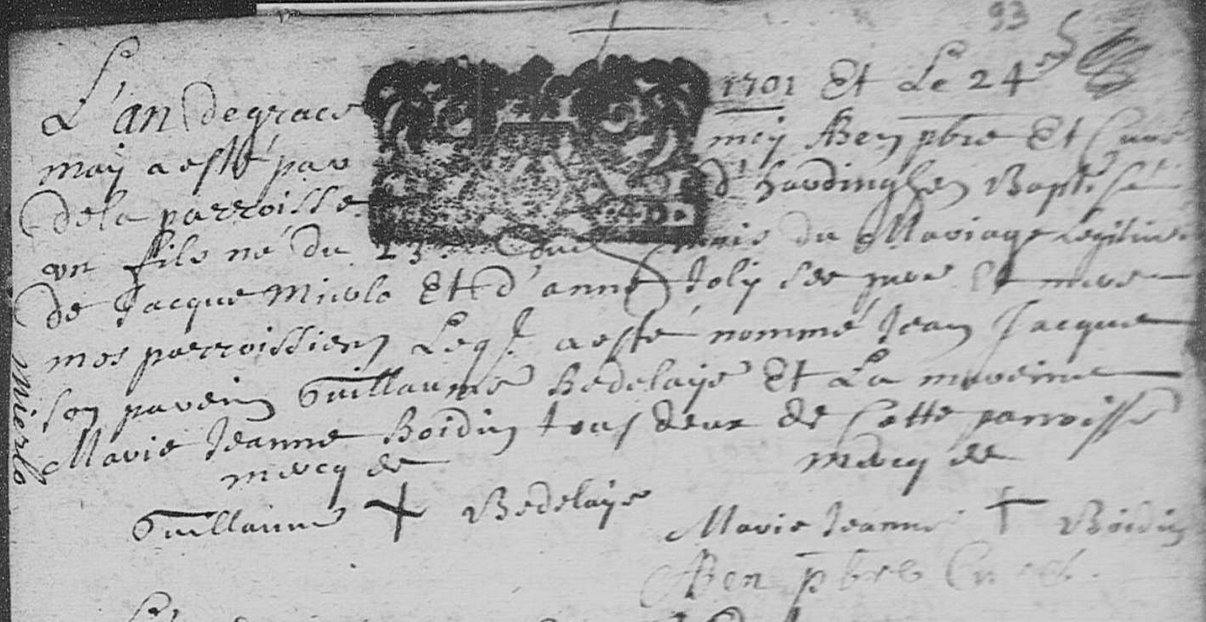 93
L'an de grace 1701 Et Le 24e
may a esté par moy Ben pbre Et Curé
de la parroisse d'hardinghen Baptisé
un fils né du 23e du mois du Mariage Legitime
de Jacque Merlo Et d'anne Joly ses pere Et mere
mes parroissiens Leql. a esté nommé Jean Jacque
son parein Guillaume Bedelaye Et La mareine
Marie Jeanne Boidin tous deux de Cette parroisse
mercq de mercq de
Guillaume + Bedelaye Marie Jeanne + Boidin
Ben pbre Curé.
Merlo